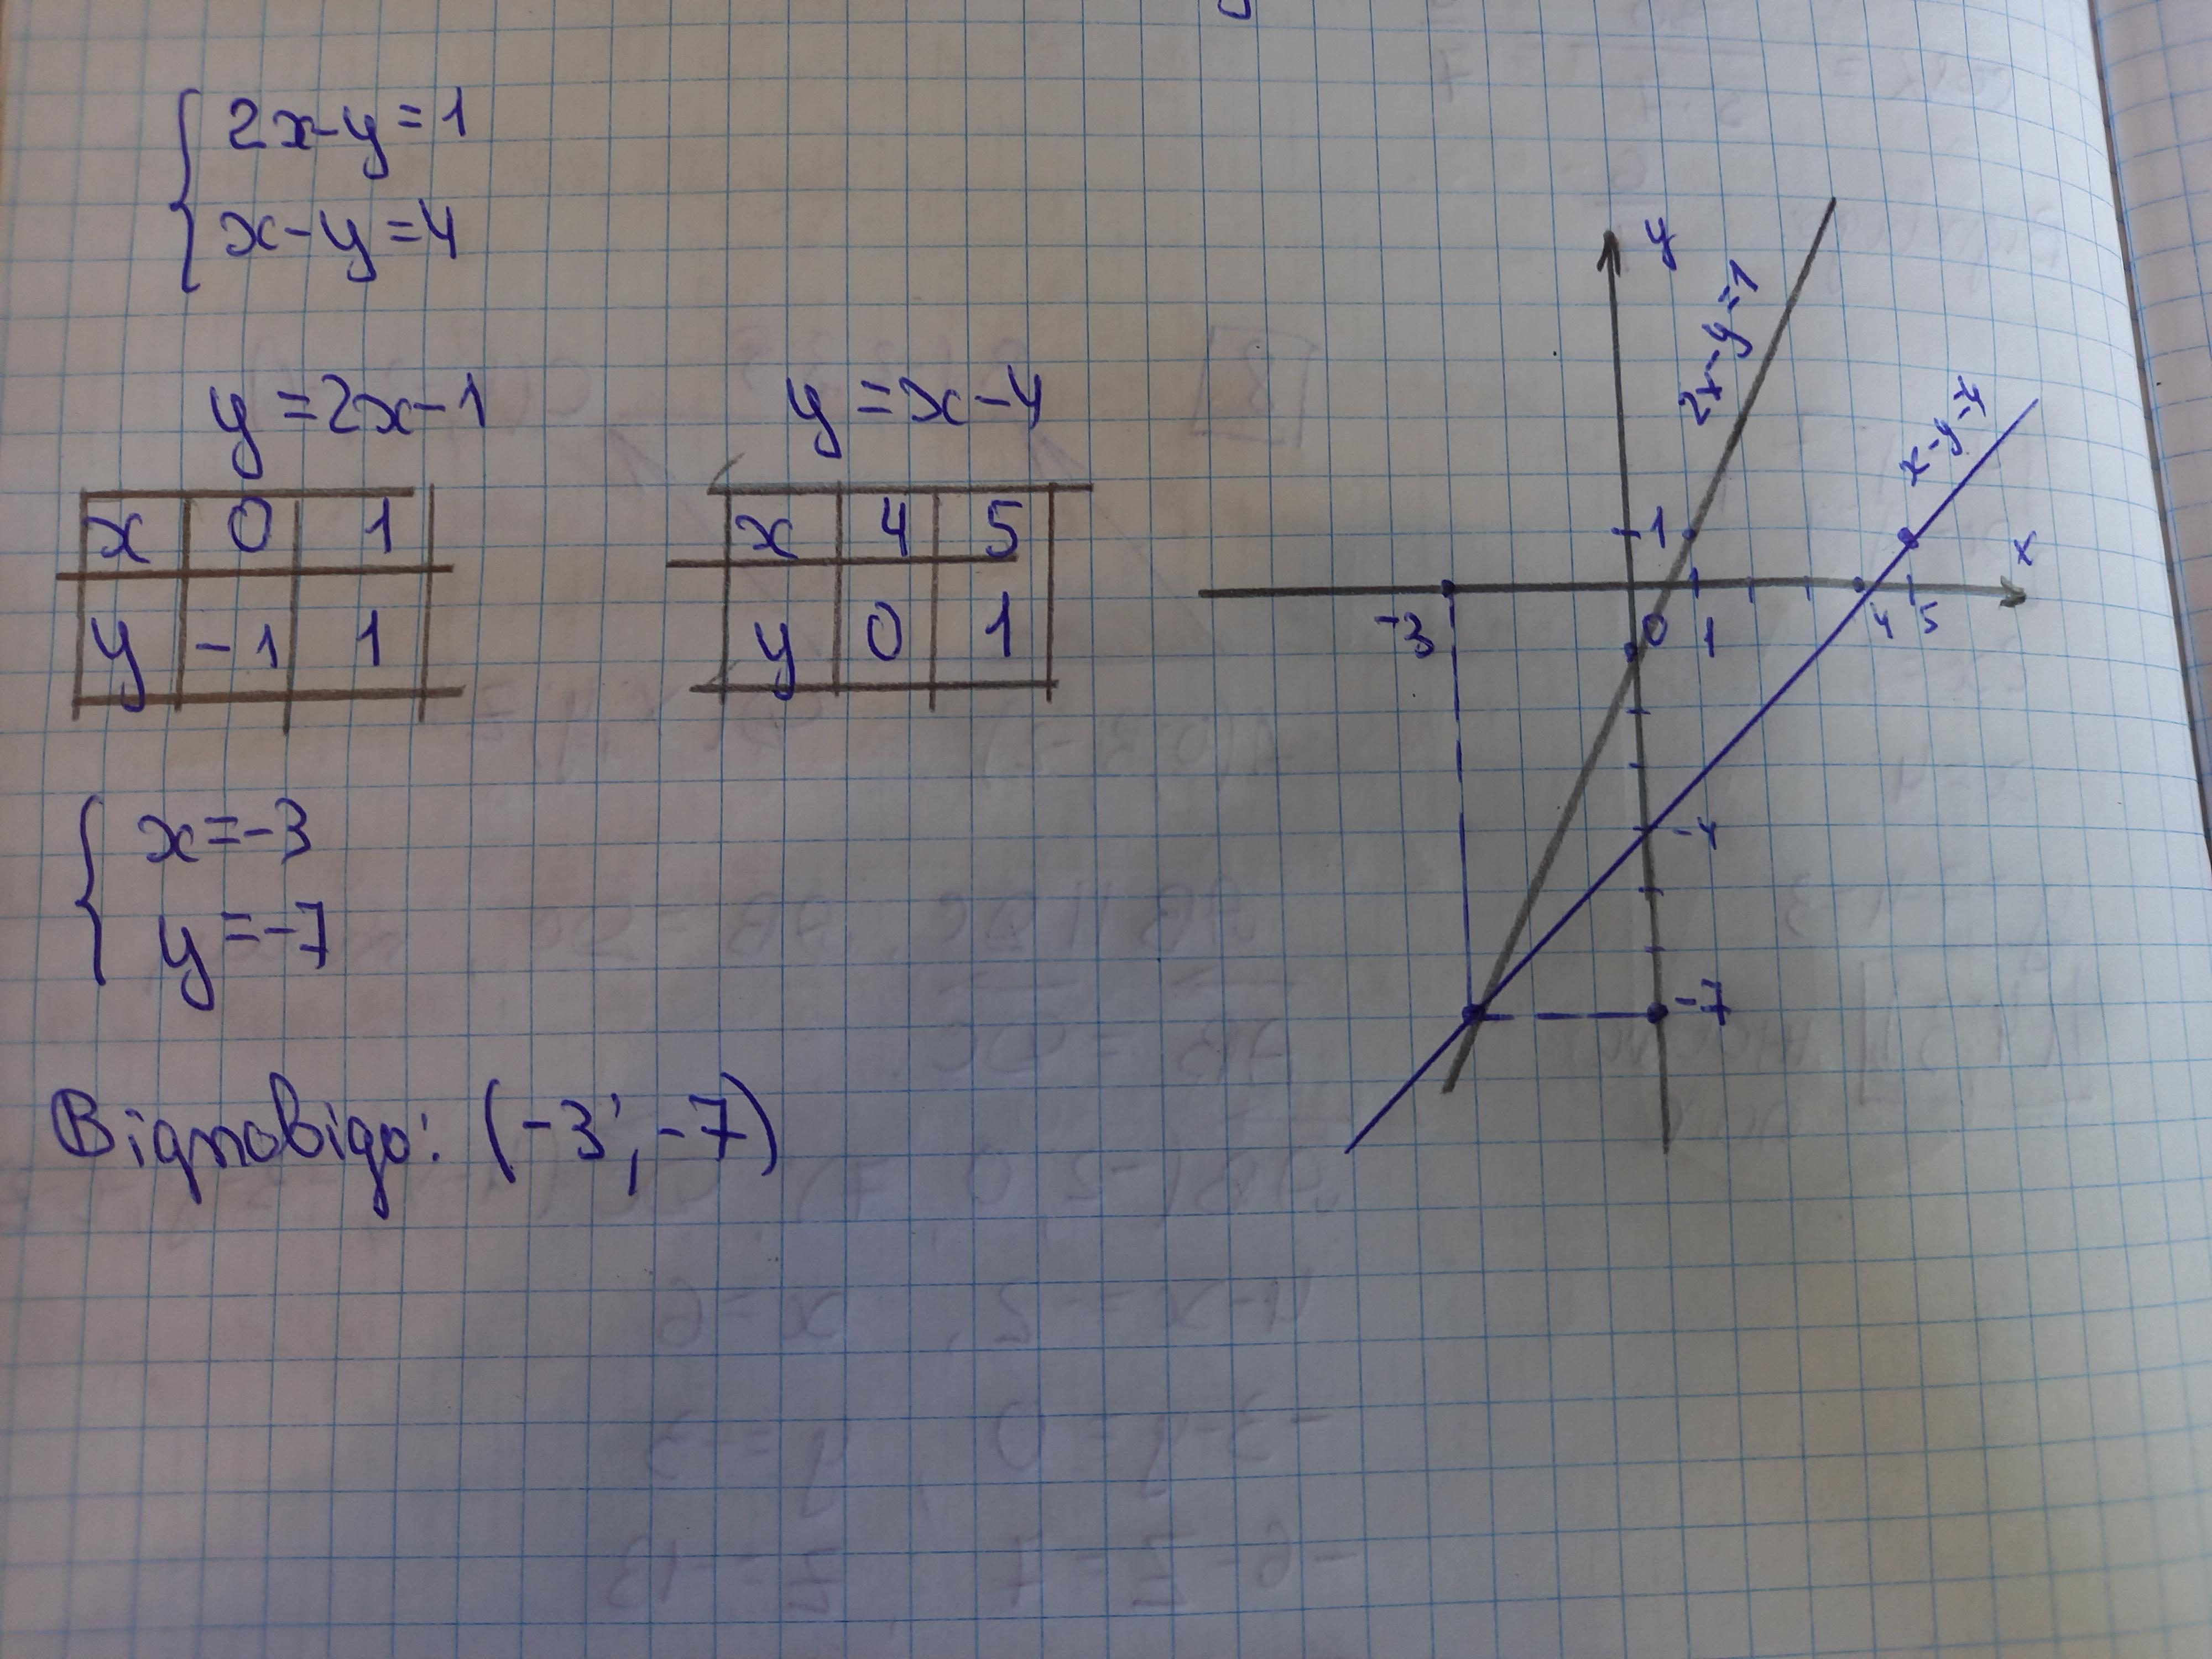 2x-y=1
x-y=4
y=2x-1
x 0 1
y -1 1
y=x-4
x 4 5
y 0 1
x=-3
y=-7
Відповідь: (-3; -7)
y
2x-y=1
x-y=4
1
x
-3
0
1
4
5
-4
-7